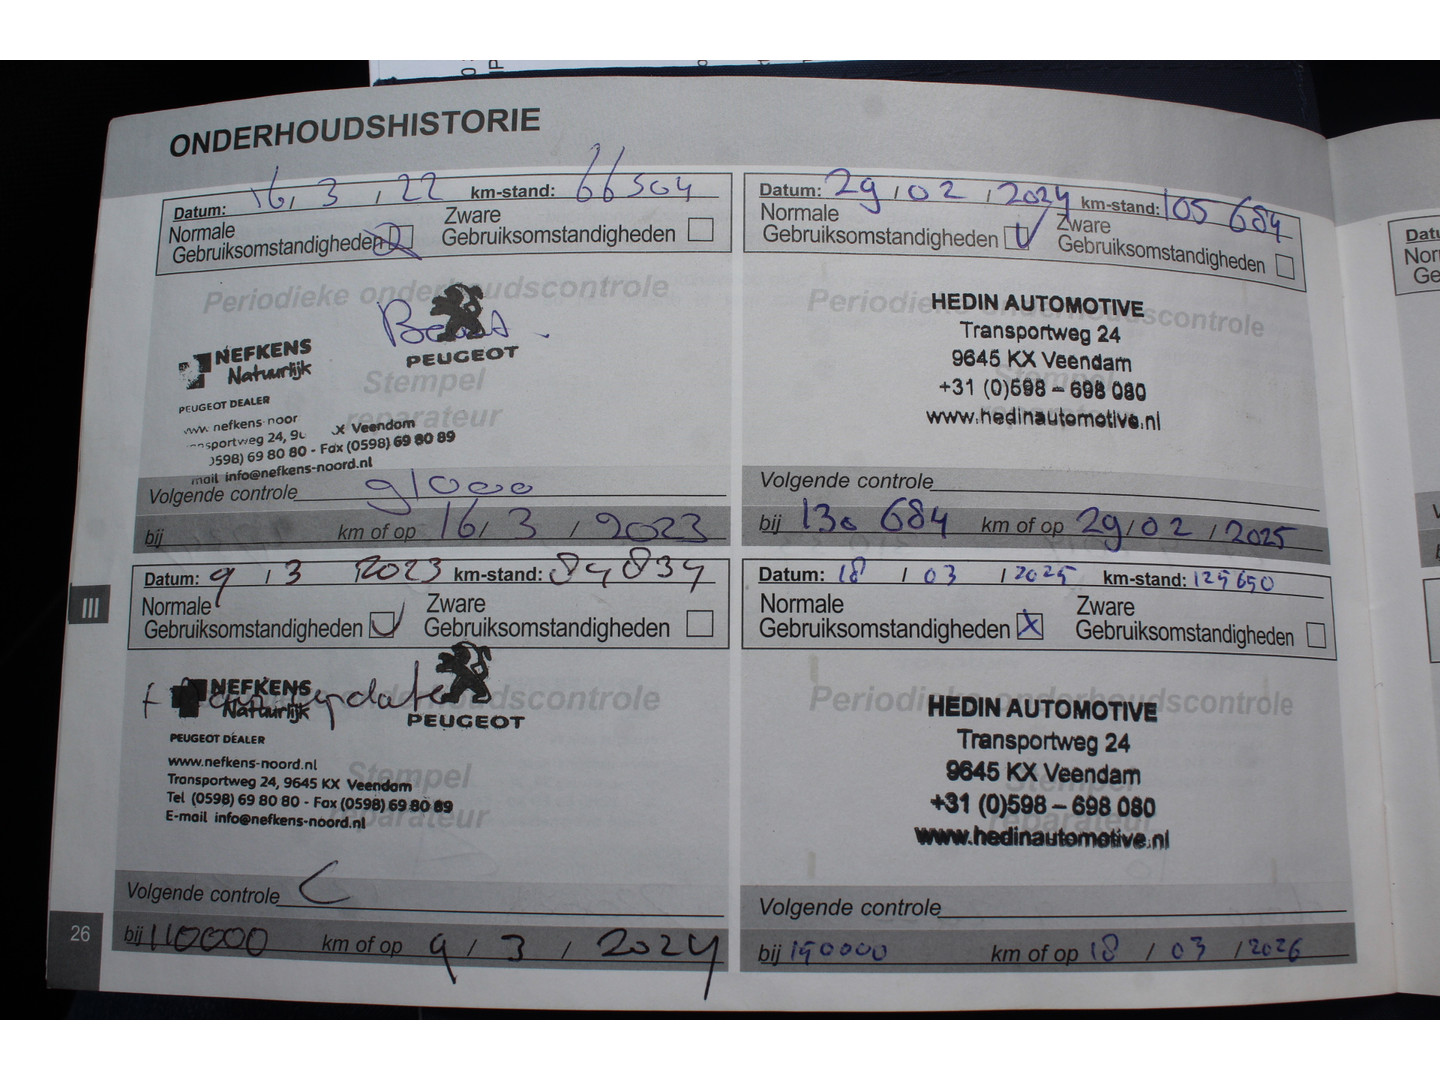 ONDERHOUDSHISTORIE
Datum: 16, 3, 22 km-stand: 66504
Normale
Gebruiksomstandigheden
Zware
Gebruiksomstandigheden
Periodieke onderhoudscontrole
NEFKENS
Natuurlijk
PEUGEOT
PEUGEOT DEALER
Stempel
reparateur
www. nefkens-noor
nsportweg 24, 96 X Veendam
0598) 69 80 80 - Fax (0598) 69 80 89
mail info@nefkens-noord.nl
Volgende controle 91000
bij km of op 16/ 3 / 2023
Datum: 29 / 02 / 2024 km-stand: 105 684
Normale
Gebruiksomstandigheden
Zware
Gebruiksomstandigheden
Periodieke onderhoudscontrole
HEDIN AUTOMOTIVE
Transportweg 24
9645 KX Veendam
Stempel
+31 (0)598 – 698 080
www.hedinautomotive.nl
Volgende controle
bij 130 684 km of op 29/02 / 2025
III
Datum: 9 / 3 2023 km-stand: 84834
Normale
Gebruiksomstandigheden
Zware
Gebruiksomstandigheden
Periodieke onderhoudscontrole
NEFKENS
Natuurlijk
update
PEUGEOT
PEUGEOT DEALER
www.nefkens-noord.nl
Stempel
Transportweg 24, 9645 KX Veendam
Tel (0598) 69 80 80 - Fax (0598) 69 80 89
reparateur
E-mail info@nefkens-noord.nl
Volgende controle
bij 110000 km of op 9 / 3 / 2024
Datum: 18 / 03 / 2025 km-stand: 125650
Normale
Gebruiksomstandigheden X
Zware
Gebruiksomstandigheden
Periodieke onderhoudscontrole
HEDIN AUTOMOTIVE
Transportweg 24
9645 KX Veendam
Stempel
+31 (0)598 – 698 080
reparateur
www.hedinautomotive.nl
Volgende controle
bij 150000 km of op 18 / 03 / 2026
26
Datu
Nor
Ge